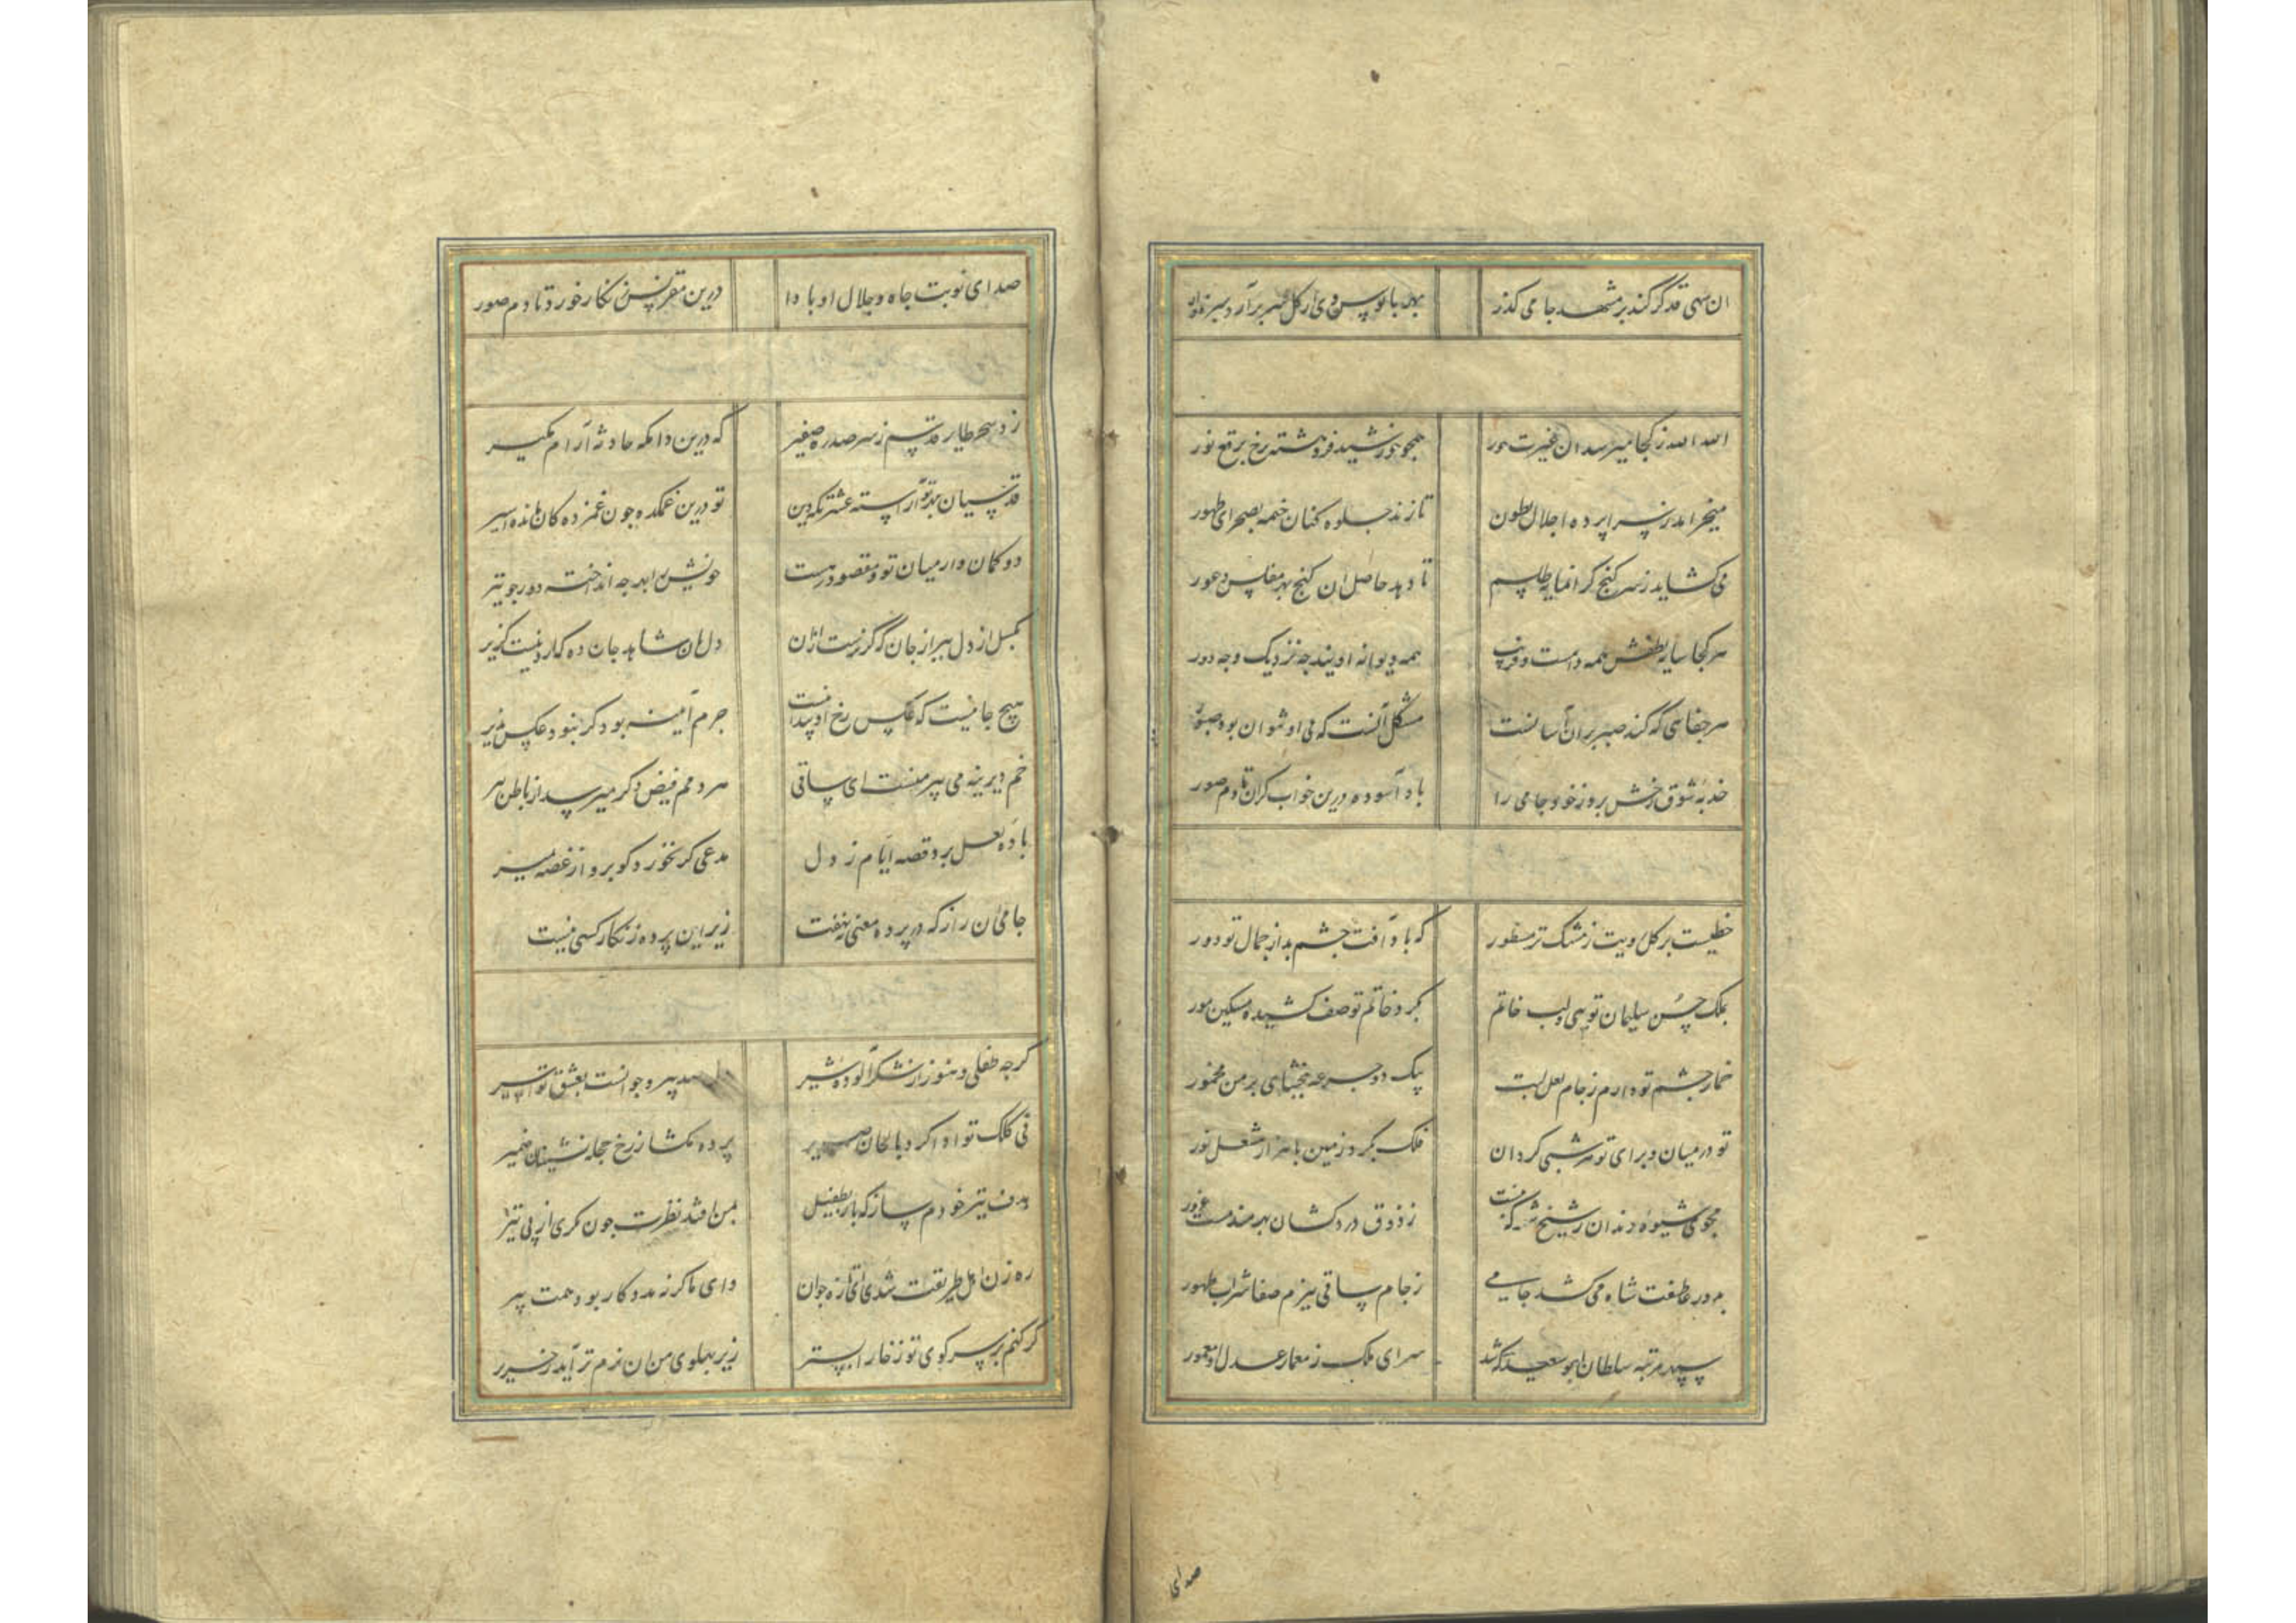 ان سهی قد گر کند بر مشهد جامی گذر بهر پابوس وی از گل سر برآرد سبزه وار
الله الله ز کجا میرسد ان غیرت حور همچو خورشید فرو هشته ز رخ برقع نور
میخرامد ز سراپرده اجلال بطون تا زند جلوه کنان خیمه بصحرای ظهور
می کشاید ز سر کنج کرانمایه طلسم تا دهد حاصل ان کنج بهر مفلس و عور
هر کجا سایه لطفش همه دامست و فریب همه دیوانه اویند چه نزدیک و چه دور
هر جفایی که کند صبر بران آسانست مشکل آنست که بی او نتوان بود صبور
جذبه شوق رخش برد ز خود جامی را باد آسوده درین خواب کران تا دم صور
خطیست بر کل رویت ز مشک تر مسطور که باد آفت چشم بد از جمال تو دور
بملک حسن سلیمان تویی و لب خاتم بکرد خاتم تو صف کشیده مسکین مور
خمار چشم تو دارم ز جام لعل لبت یک دو جرعه ببخشای بر من مخمور
تو در میان و برای تو هر شبی کردان فلک بکرد زمین با هزار مشعل نور
مجوی شیوه رندان ز شیخ شهر که نیست ز ذوق دردکشان بهره مند مست غرور
بدور عاطفت شاه می کشد جامی ز جام ساقی بزم صفا شراب طهور
سپهر مرتبه سلطان ابوسعید که شد سرای ملک ز معمار عدل او معمور
صدای
صدای نوبت جاه و جلال او بادا درین مقرنس زنکار خورد تا دم صور
زد سحر طایر قدسم ز سر صدره صفیر که درین دامکه حادثه آرام مکیر
قدسیان بهر تو آراسته عشرتکه دین تو درین غمکده چون غمزده کان مانده اسیر
دو کمان وار میان تو و مقصود رهست خویش را بهر چه انداخته دور چو تیر
بکسل از دل ببر از جان که کزیرست ازان دل بان شاهد جان ده که ازو نیست کزیر
هیچ جا نیست که عکس رخ او پیدا نیست جرم آینه بود کر نبود عکس پذیر
خم دیرینه می پیر منست ای ساقی هر دمم فیض دکر میرسد از باطن پیر
باده لعل برد قصه ایام ز دل مدعی کر نخورد کو برو از غصه بمیر
جامی ان راز که در پرده معنی بنهفت زیر این پرده زنکار کسی نیست
کرچه طفلی و هنوز از شکر آلوده شیر پیر و جوانست بعشق تو اسیر
نی کلک تو ادا کرد بالحان صریر پرده بکشا ز رخ حجله نشینان ضمیر
هدف تیر خودم ساز که باری بطفیل بمن افتد نظرت چون نکری از پی تیر
ره زن اهل طریقت شدی ای تازه جوان وای ما کر نه مددکار بود همت پیر
کر کنم بر سر کوی تو ز خارا بستر زیر پهلوی من ان نرم تر آید ز حریر